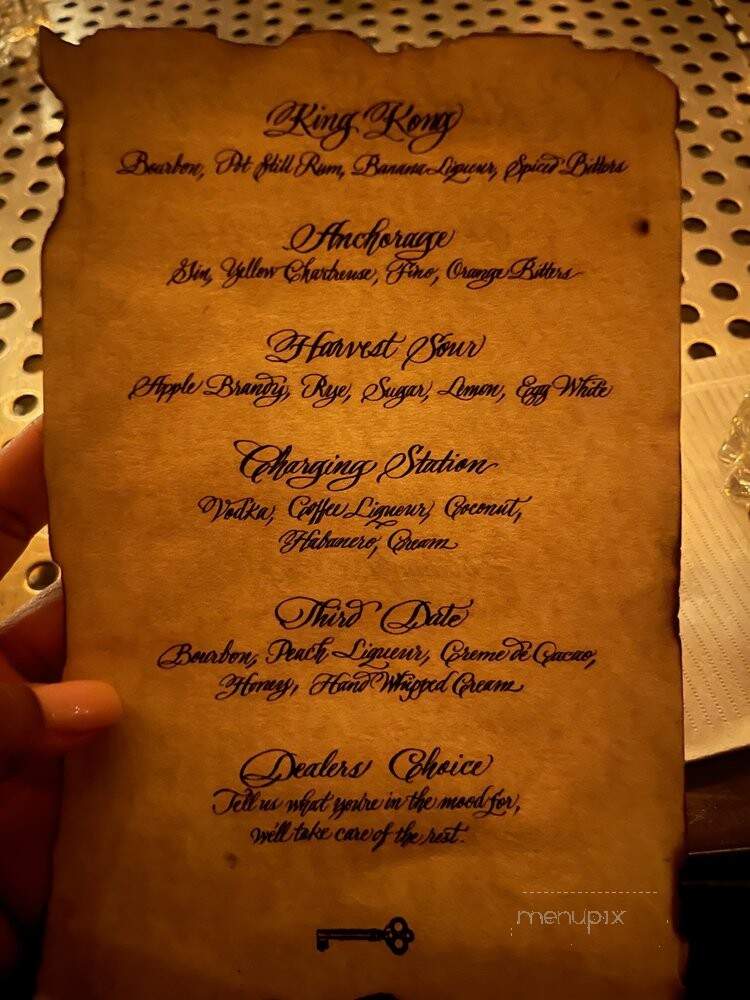 King Kong
Bourbon, Pot Still Rum, Banana Liqueur, Spiced Bitters
Anchorage
Gin, Yellow Chartreuse, Fino, Orange Bitters
Harvest Sour
Apple Brandy, Rye, Sugar, Lemon, Egg White
Charging Station
Vodka, Coffee Liqueur, Coconut,
Habanero, Cream
Third Date
Bourbon, Peach Liqueur, Creme de Cacao,
Honey, Hand Whipped Cream
Dealers Choice
Tell us what you're in the mood for,
we'll take care of the rest.
menupix